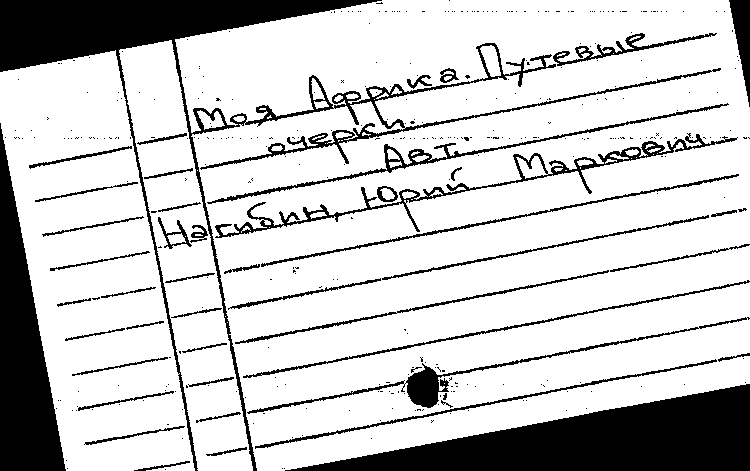 Моя Африка. Путевые
очерки.
Авт.:
Нагибин, Юрий Маркович.